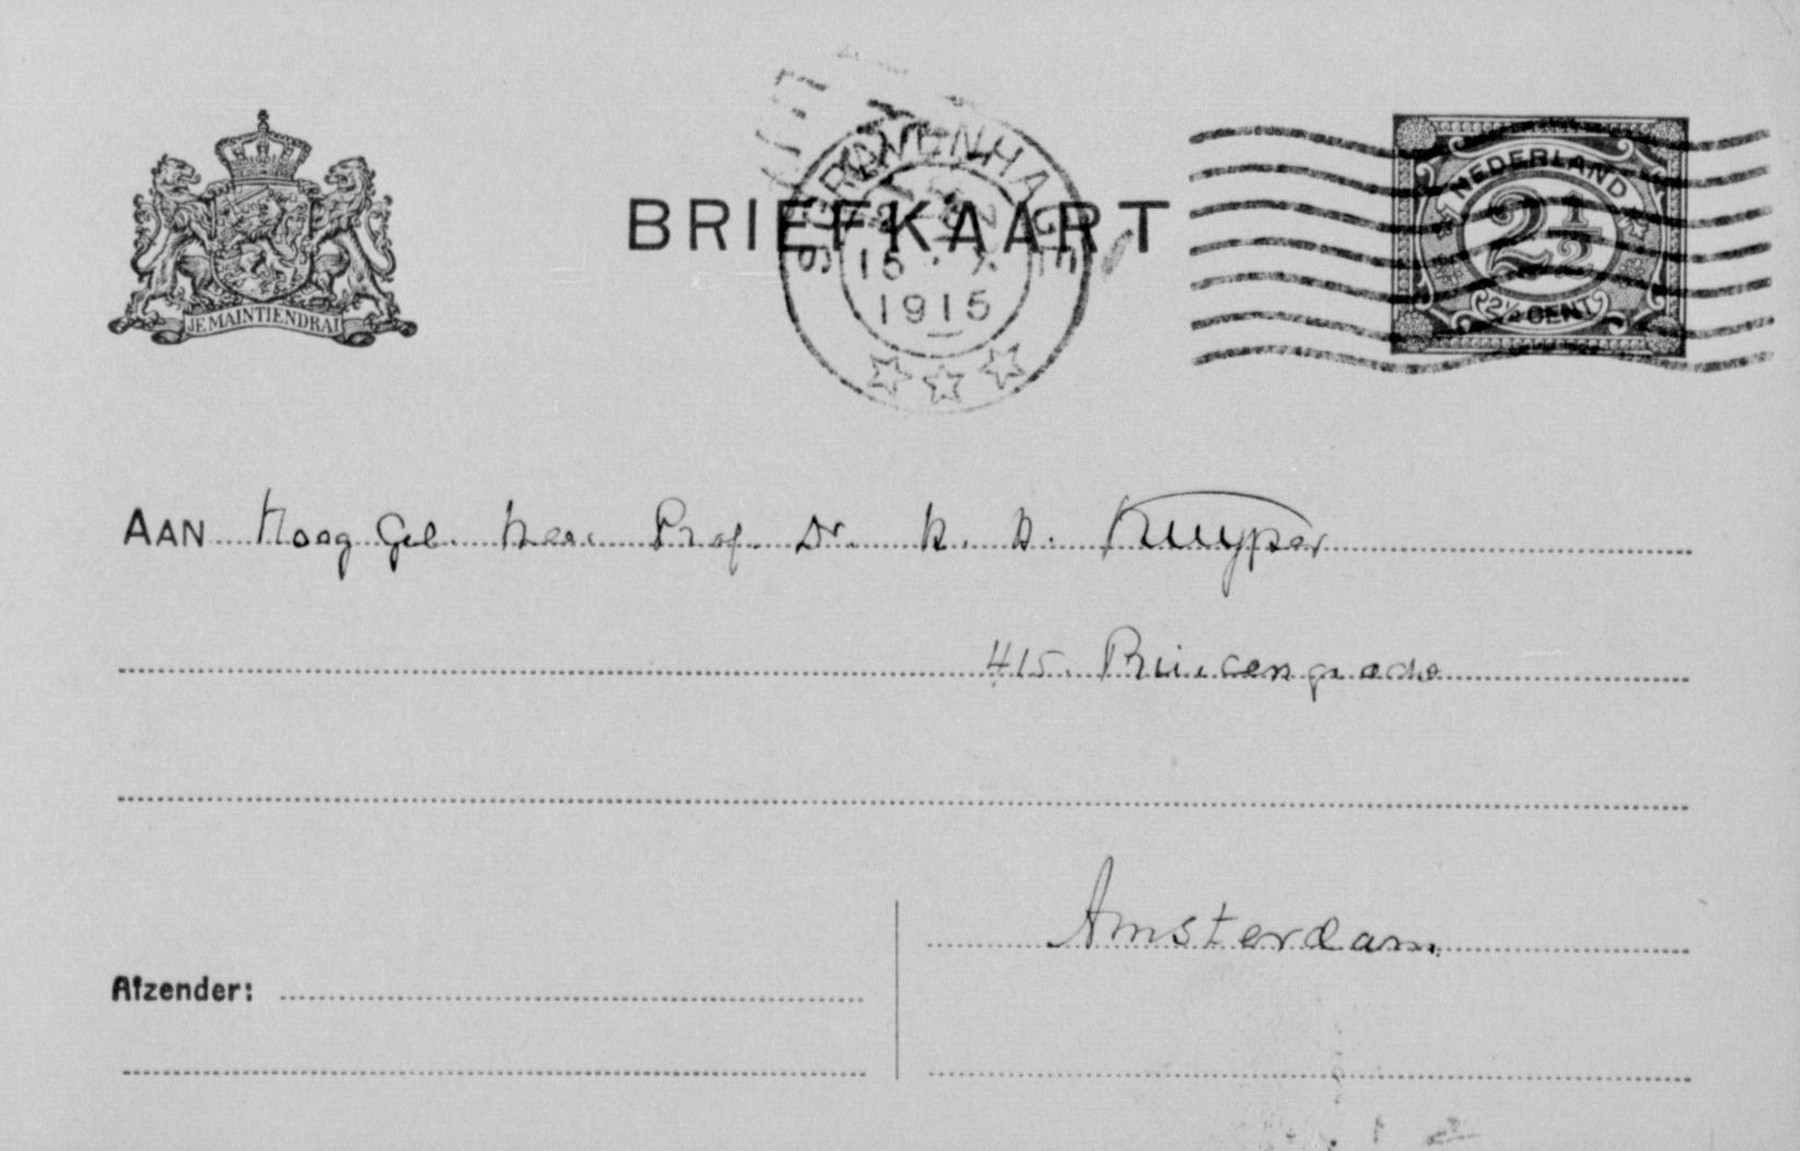 BRIEFKAART
JE MAINTIENDRAI
'S GRAVENHAGE
15 X
1915
NEDERLAND
2½
2½ CENT
AAN Hoog Gel. Heer Prof. Dr. H. H. Kuyper
415. Prinsengracht
Amsterdam.
Afzender: